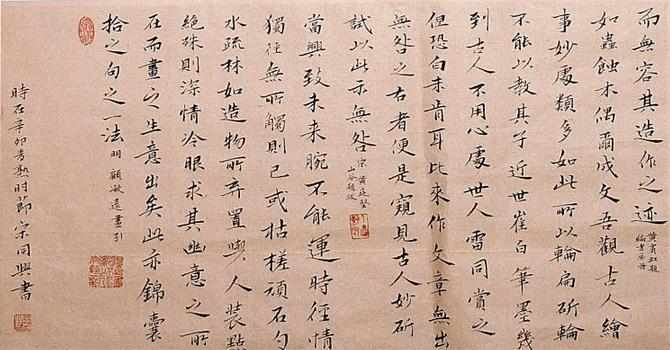 而無容其造作之迹
如蟲蝕木偶爾成文吾觀古人繪
事妙處類多如此所以輪扁斫輪
不能以教其子近世崔白筆墨幾
到古人不用心處世人雷同賞之
但恐白未肯耳比來作文章無出
無咎之右者便是窺見古人妙斫
試以此示無咎 宋黃庭堅
山谷題跋
當興致未來腕不能運時徑情
獨往無所觸則已或枯槎頑石勺
水疏林如造物所弃置與人裝點
絕殊則深情冷眼求其幽意之所
在而畫之生意出矣此亦錦囊
拾之句之一法 明 顧凝遠畫引
時在辛卯麥熟时節宗同興書